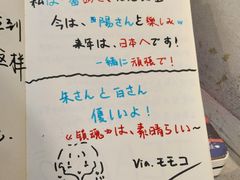 今は、"陽さんと楽しみ〃
来年は、日本へです！
一緒に頑張で！
朱さんと白さん
優しいよ！
《鎮魂》は、素晴らしい~
Via. モモコ
到
这样